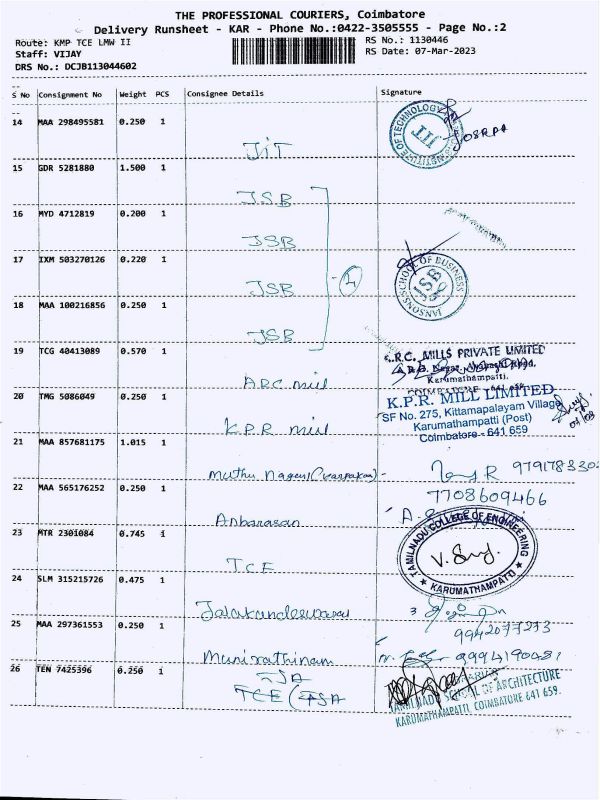 THE PROFESSIONAL COURIERS, Coimbatore
Delivery Runsheet - KAR - Phone No.:0422-3505555 - Page No.:2
Route: KMP TCE LMW II
Staff: VIJAY
DRS No.: DCJB113044602
RS No.: 1130446
RS Date: 07-Mar-2023
S No Consignment No Weight PCS Consignee Details Signature
14 MAA 298495581 0.250 1
JIT
INSTITUTE OF TECHNOLOGY
JIT
15 GDR 5281880 1.500 1
JSB
16 MYD 4712819 0.200 1
JSB
17 IXM 503270126 0.220 1
JSB
JANSONS SCHOOL OF BUSINESS
JSB
18 MAA 100216856 0.250 1
JSB
19 TCG 40413089 0.570 1
ARC mill
A.R.C. MILLS PRIVATE LIMITED
Karumathampatti.
COIMBATORE - 641 659
20 TMG 5086049 0.250 1
K.P.R mill
K.P.R. MILL LIMITED
SF No. 275, Kittamapalayam Village
Karumathampatti (Post)
Coimbatore - 641 659
21 MAA 857681175 1.015 1
Muthu
7708609466
22 MAA 565176252 0.250 1
Anbarasan
23 MTR 2301084 0.745 1
TCE
TAMILNADU COLLEGE OF ENGINEERING
KARUMATHAMPATTI
24 SLM 315215726 0.475 1
9942077273
25 MAA 297361553 0.250 1
Munirathinam
9994190481
26 TEN 7425396 0.250 1
TCE
TAMILNADU SCHOOL OF ARCHITECTURE
KARUMATHAMPATTI, COIMBATORE 641 659.